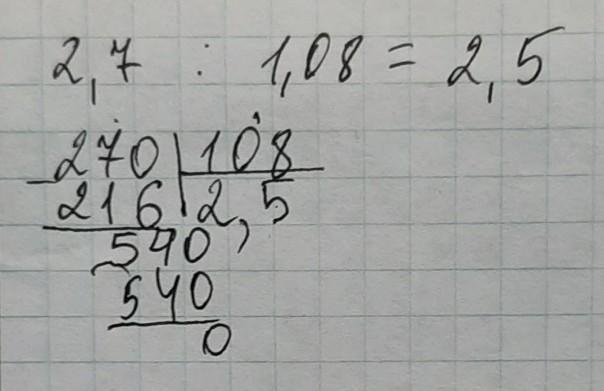 2,7 : 1,08 = 2,5
270 108
- 216 2,5
540
540
0